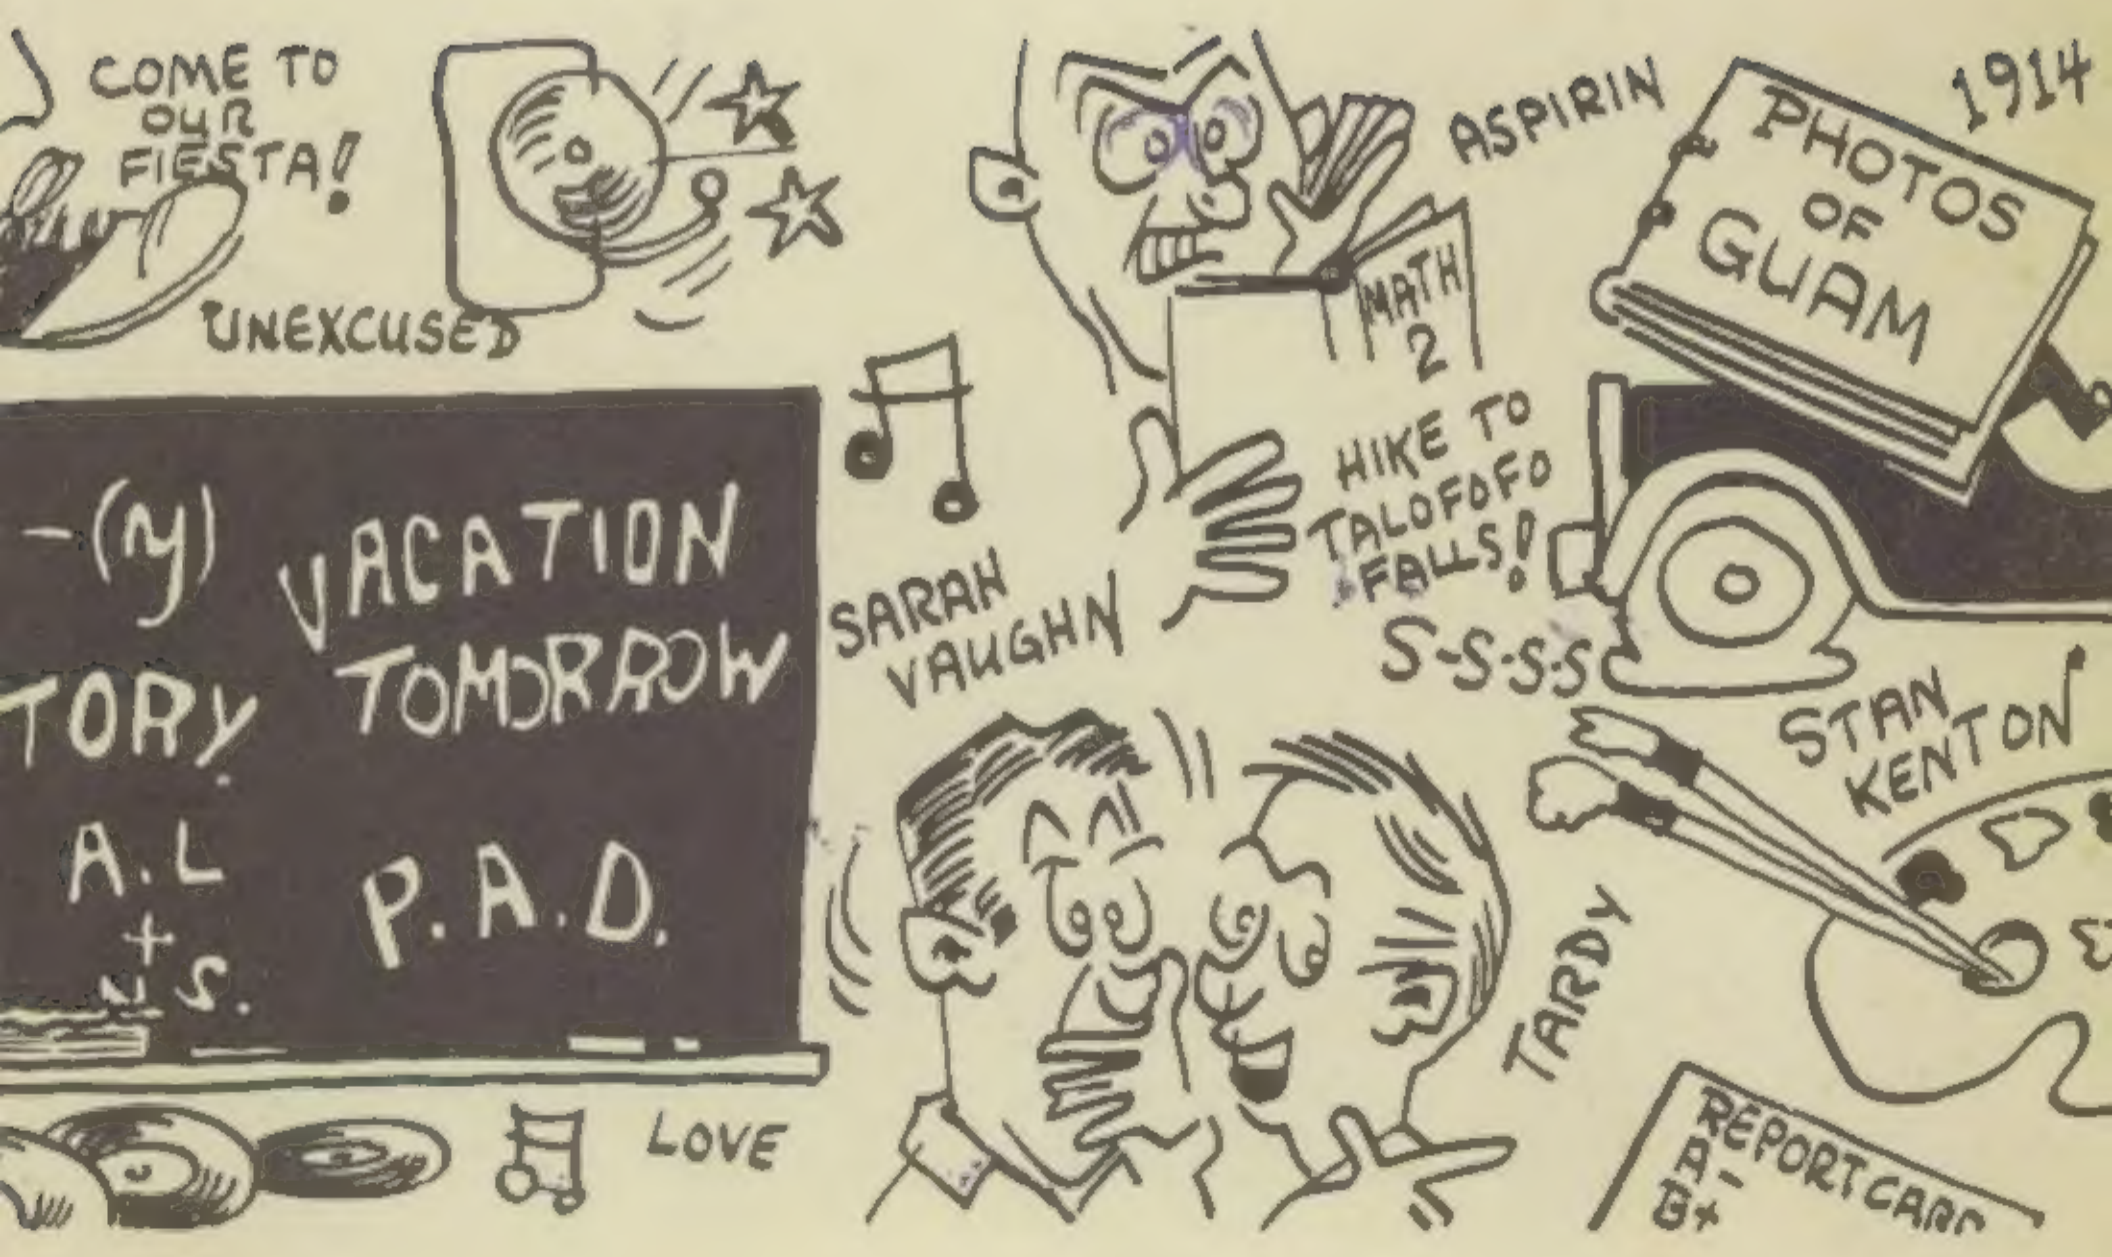 COME TO
OUR
FIESTA!
UNEXCUSED
ASPIRIN
1914
PHOTOS
OF
GUAM
MATH
2
HIKE TO
TALOFOFO
FALLS!
S-S-S-S
-(y)
VACATION
TOMORROW
TORY
A.L
+
J S.
P.A.D.
SARAH
VAUGHN
STAN
KENTON
TARDY
LOVE
REPORT CARD
A-
B+